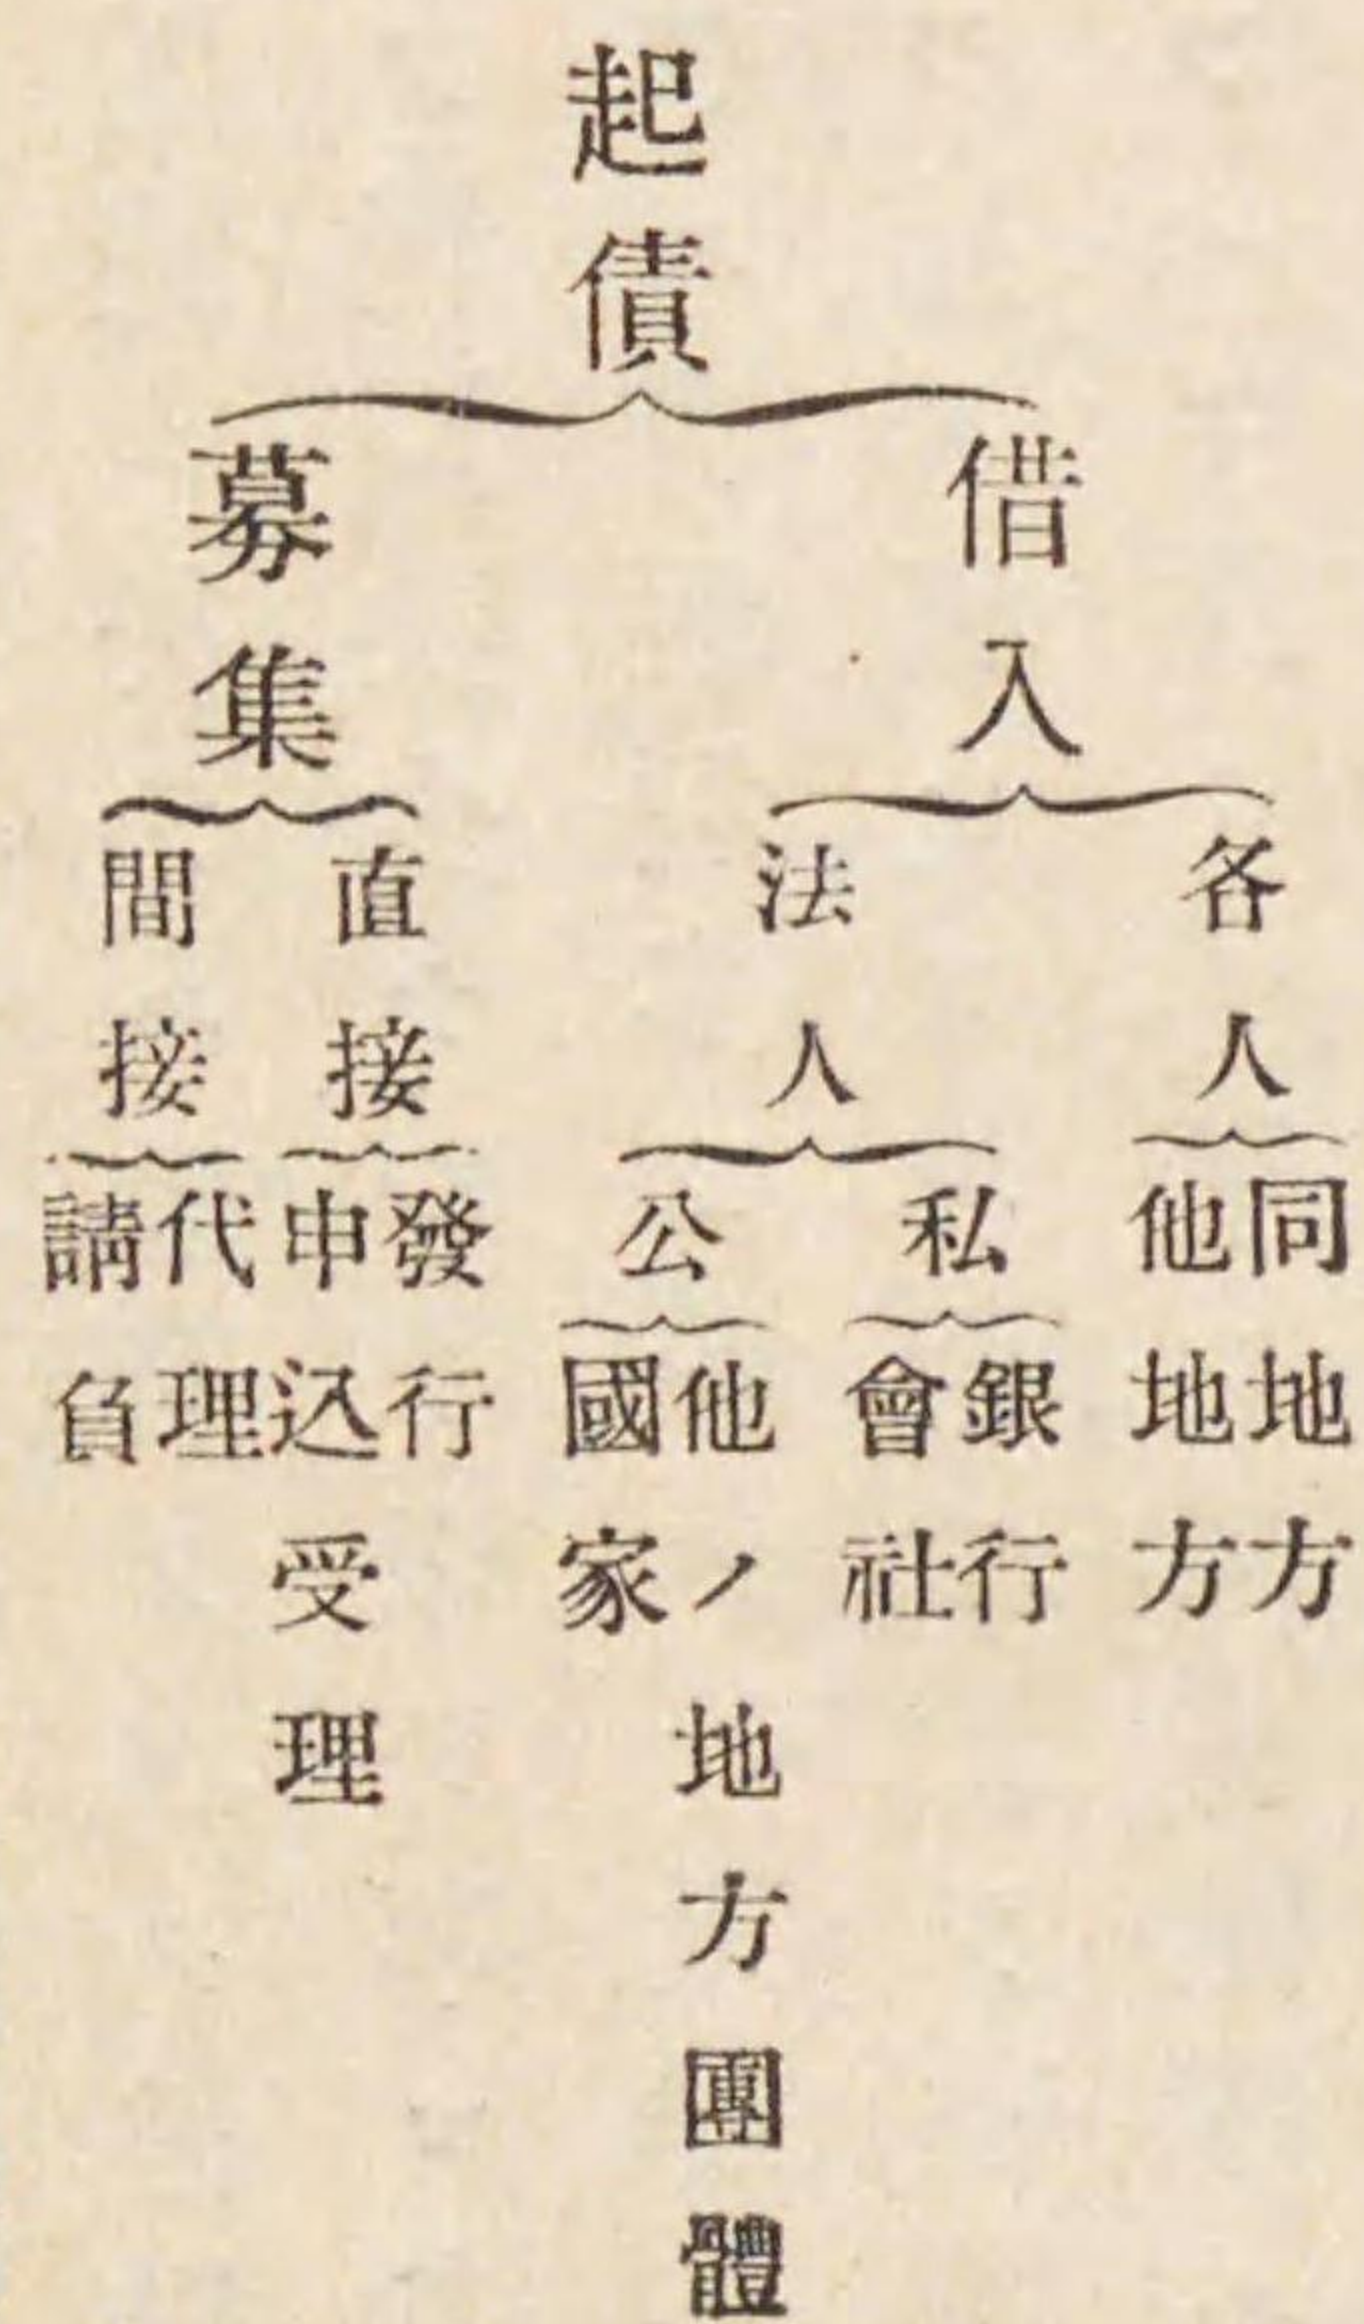 起債
借入
各人
同地方
他地方
法人
私
銀行
會社
公
他ノ地方團體
國家
募集
直接
發行
申込受理
間接
代理
請負